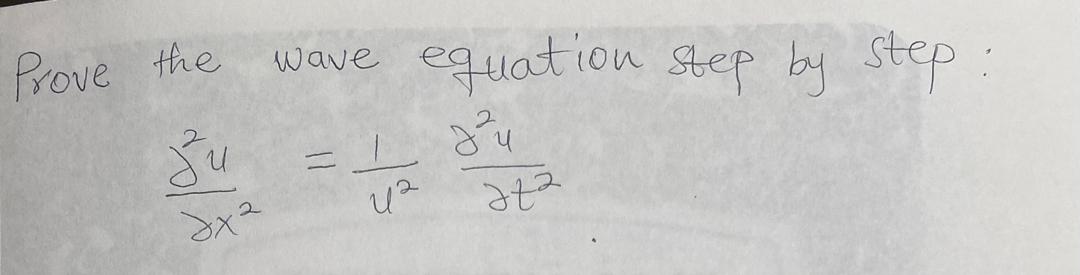 Prove the wave equation step by step :
∂²u/∂x² = 1/u² ∂²u/∂t² .